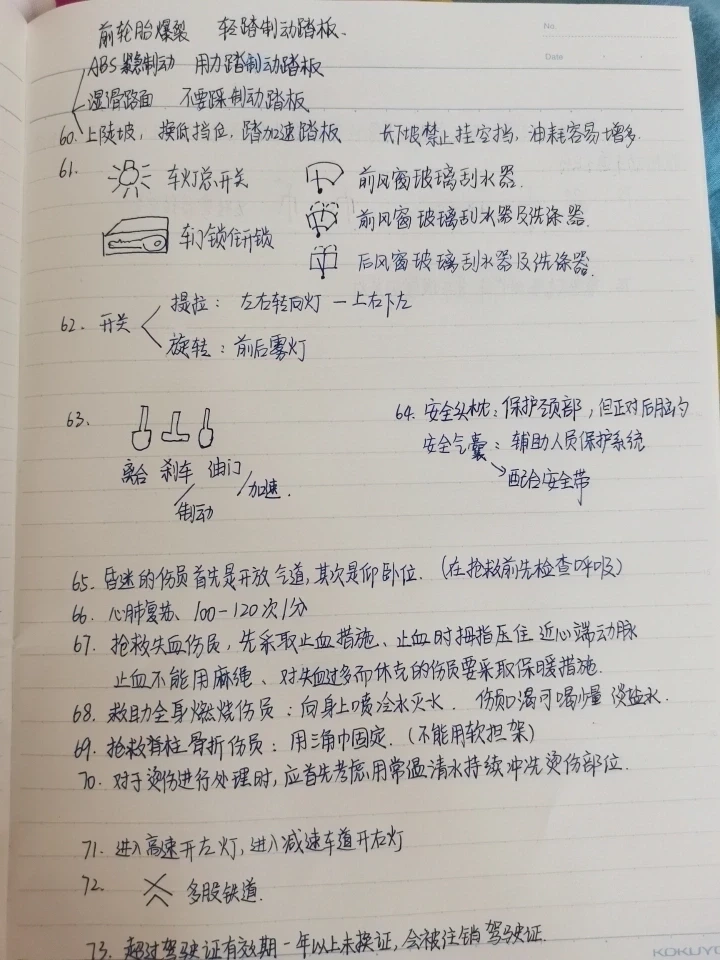 No.
Date
前轮胎爆裂 轻踏制动踏板.
ABS紧急制动 用力踏制动踏板
湿滑路面 不要踩制动踏板
60. 上陡坡, 换低挡位, 踏加速踏板 长下坡禁止挂空挡, 油耗容易增多.
61. 车灯总开关 前风窗玻璃刮水器.
前风窗玻璃刮水器及洗涤器.
车门锁住开锁
后风窗玻璃刮水器及洗涤器.
62. 开关 提拉: 左右转向灯 — 上右下左
旋转: 前后雾灯
63.
离合 刹车 油门
制动 加速.
64. 安全头枕: 保护颈部, 但正对后脑勺
安全气囊: 辅助人员保护系统
配合安全带
65. 昏迷的伤员首先是开放气道, 其次是仰卧位. (在抢救前先检查呼吸)
66. 心肺复苏、100-120次/分
67. 抢救失血伤员, 先采取止血措施、止血时拇指压住近心端动脉
止血不能用麻绳、对失血过多而休克的伤员要采取保暖措施.
68. 救助全身燃烧伤员: 向身上喷冷水灭水. 伤员口渴可喝少量淡盐水.
69. 抢救脊柱骨折伤员: 用三角巾固定. (不能用软担架)
70. 对于烫伤进行处理时, 应首先考虑用常温清水持续冲洗烫伤部位.
71. 进入高速开左灯, 进入减速车道开右灯
72. 多股铁道.
73. 超过驾驶证有效期一年以上未换证, 会被注销驾驶证.
KOKUYO